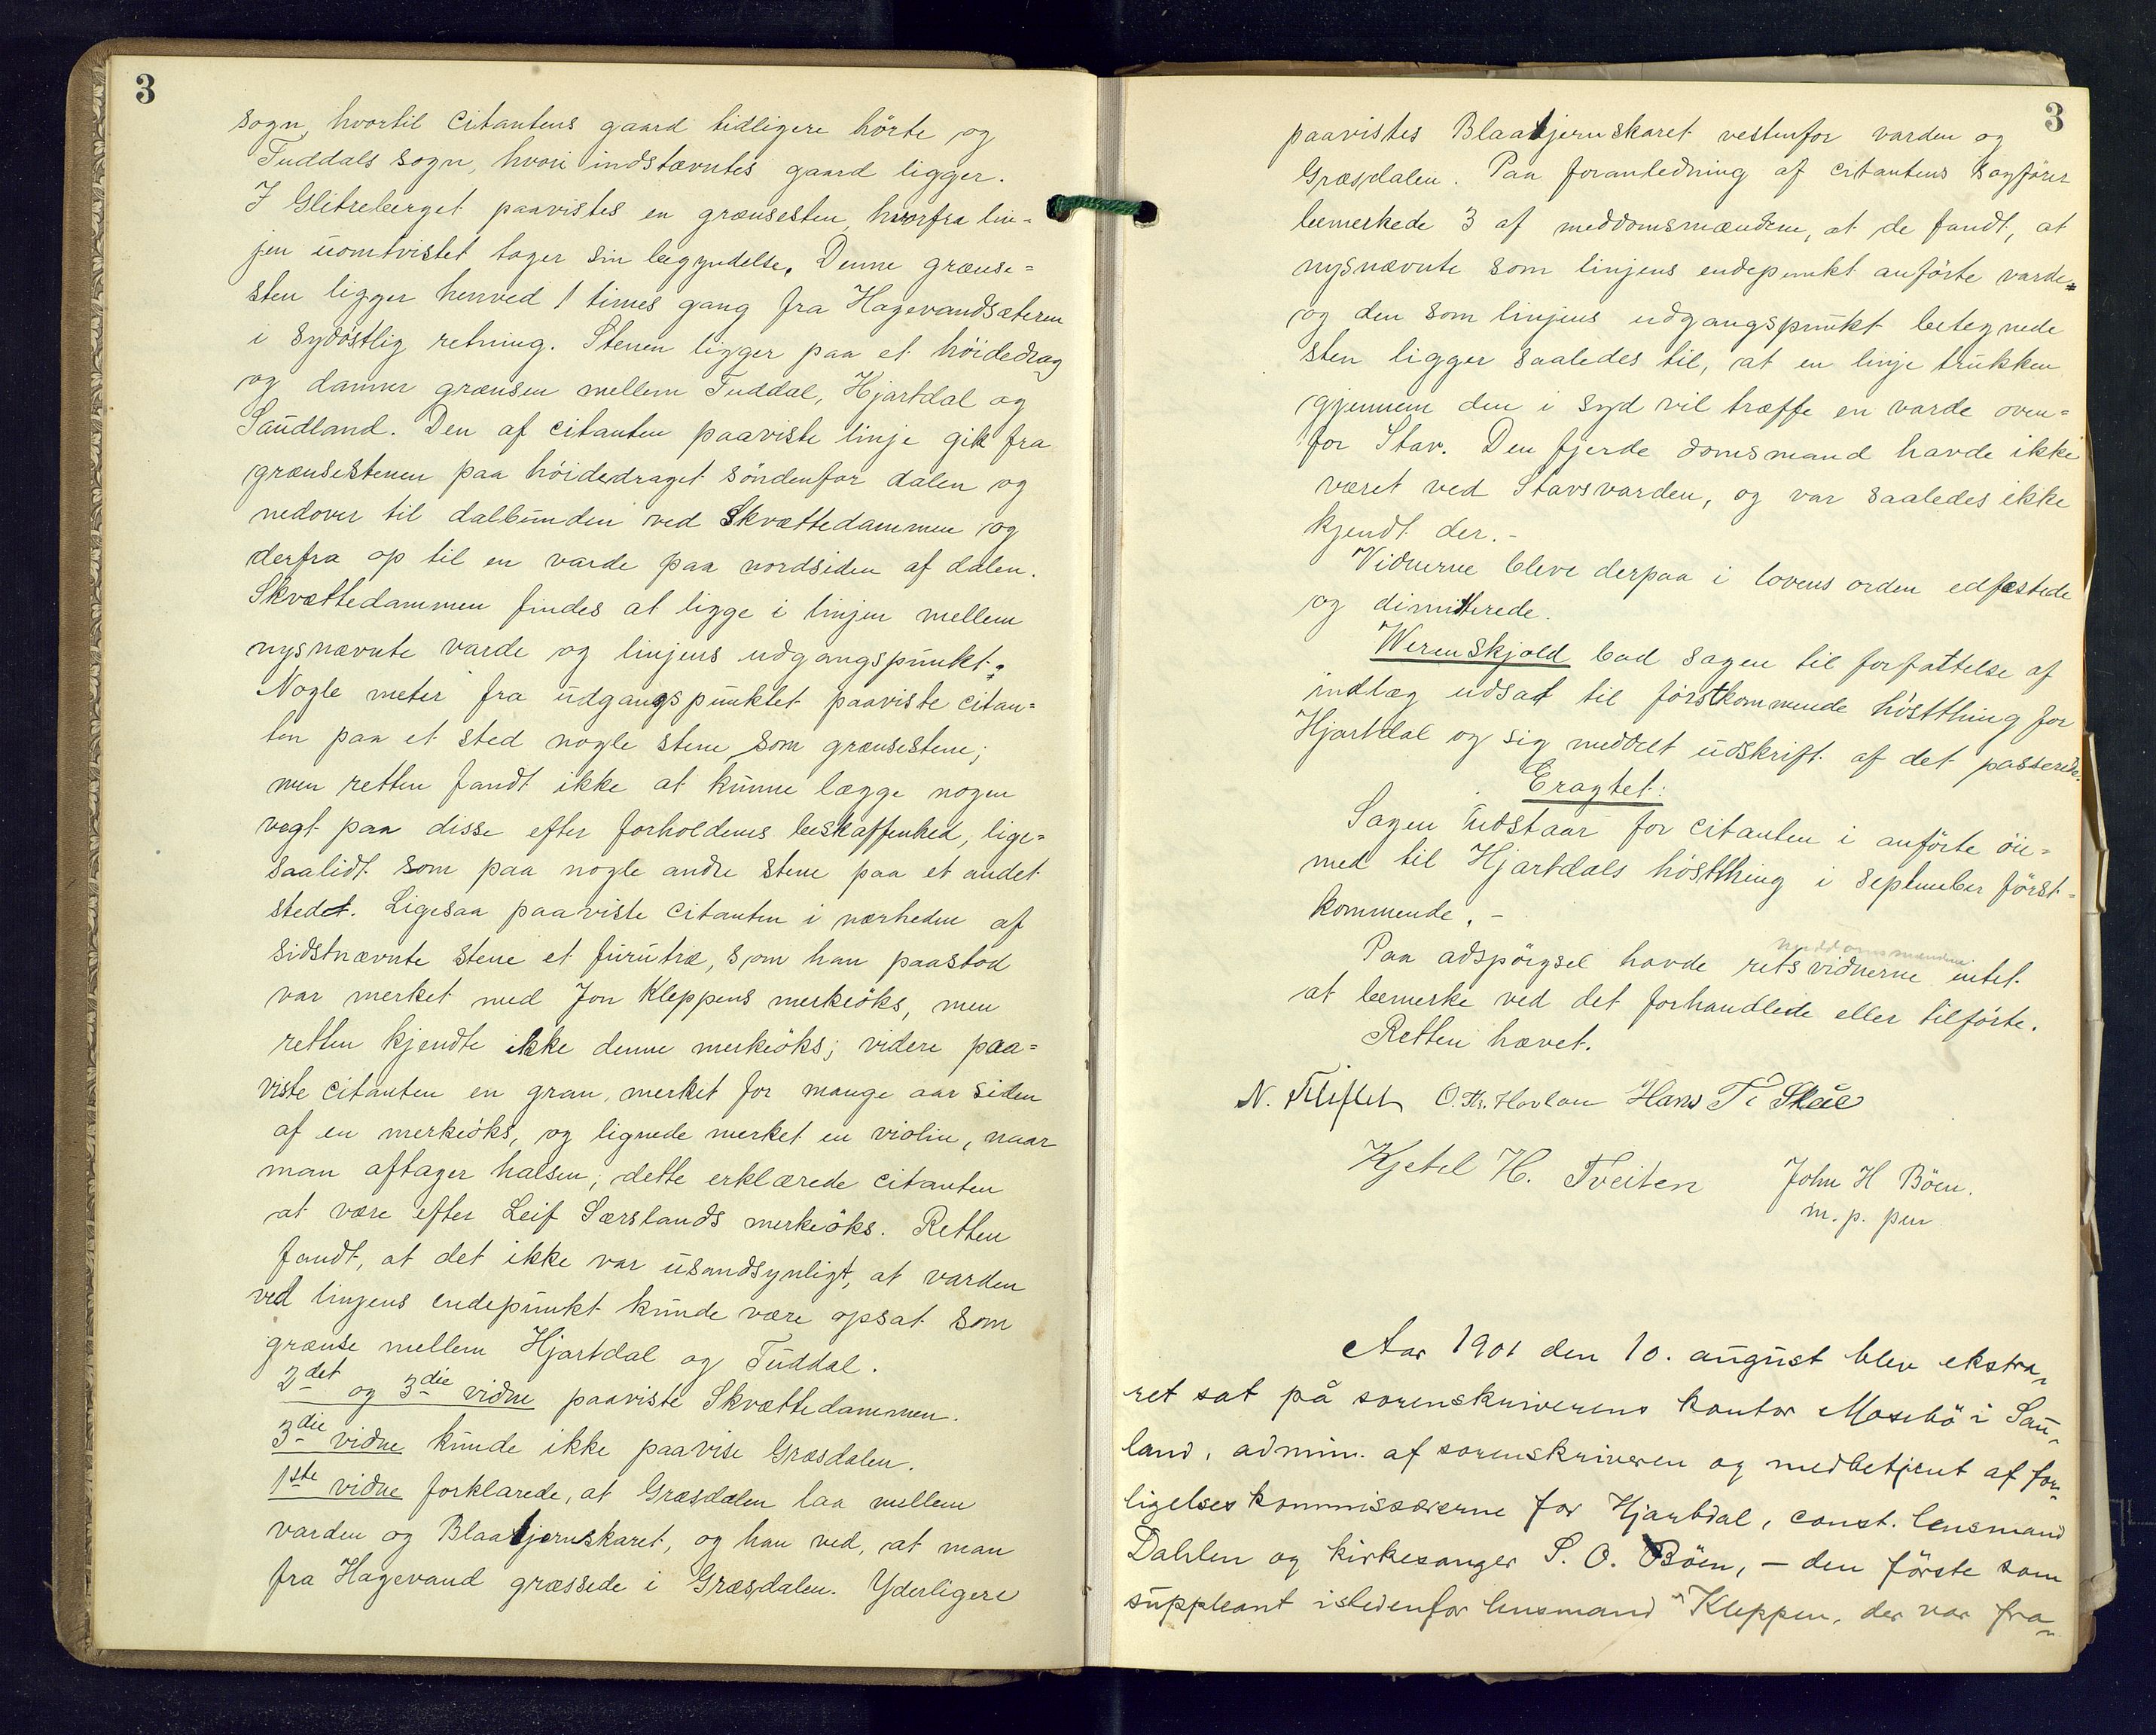 3
sogn, hvortil citantens gaard tidligere hörte og
Tuddals sogn, hvori indstævntes gaard ligger.
I Glitreberget paavistes en grænsesten, hvorfra lin-
jen uomtvistet tager sin begyndelse. Denne grænse=
sten ligger henved 1 times gang fra Hagevandsæteren
i sydöstlig retning. Stenen ligger paa et höidedrag
og danner grænsen mellem Tuddal, Hjartdal og
Saudland. Den af citanten paaviste linje gik fra
grænsestenen paa höidedraget söndenfor dalen og
nedover til dalbunden ved Skvættedammen og
derfra op til en varde paa nordsiden af dalen.
Skvættedammen findes at ligge i linjen mellem
nysnævnte varde og linjens udgangspunkt.
Nogle meter fra udgangspunktet paaviste citan=
ten paa et sted nogle stene som grænsestene;
men retten fandt ikke at kunne lægge nogen
vegt paa disse efter forholdenes beskaffenhed, lige=
saalidt som paa nogle andre stene paa et andet
stedet. Ligesaa paaviste citanten i nærheden af
sidstnævnte stene et furutræ, som han paastod
var merket med Jon Kleppens merkeöks, men
retten kjendte ikke denne merkeöks; videre paa=
viste citanten en gran, merket for mange aar siden
af en merkeöks, og lignede merket en violin, naar
man aftager halsen; dette erklærede citanten
at være efter Leif Særslands merkeöks. Retten
fandt, at det ikke var usandsynligt, at varden
ved linjens endepunkt kunde være opsat som
grænse mellem Hjartdal og Tuddal.
2det og 3die vidne paaviste Skvættedammen.
3die vidne kunde ikke paavise Græsdalen.
1ste vidne forklarede, at Græsdalen laa mellem
varden og Blaatjernskaret, og han ved, at man
fra Hagevand græssede i Græsdalen. Yderligere
3
paavistes Blaatjernskaret vestenfor varden og
Græsdalen. Paa foranledning af citantens sagförer
bemerkede 3 af meddomsmændene, at de fandt, at
nysnævnte som linjens endepunkt anförte varde=
og den som linjens udgangspunkt betegnede
sten ligger saaledes til, at en linje trukken
gjennem den i syd vil træffe en varde oven=
for Stav. Den fjerde domsmand havde ikke
været ved Stavsvarden, og var saaledes ikke
kjendt der.-
Vidnerne bleve derpaa i lovens orden edfæstede
og dimitterede.
Werenskjold bad sagen til forfattelse af
indlæg udsat til förstkommende hösthing for
Hjartdal og sig meddelt udskrift af det passerede.
Eragtet:
Sagen udstaar for citanten i anförte öie=
med til Hjartdals hösthing i september först=
kommende.-
meddomsmændene
Paa adspörgsel havde retsvidnerne intet
at bemerke ved det forhandlede eller tilförte.
Retten hævet.
N. O. Th. Hovlan Hans T.
Kjetel H. Tveiten John H Böen.
m. p. pen
Aar 1901 den 10. august blev ekstra-
ret sat på sorenskriverens kontor Mosebö i Sau-
land, admin. af sorenskriveren og medbetjent af for-
ligelseskommissærerne for Hjartdal, const. lensmand
Dahlen og kirkesanger S. O. Böen, - den förste som
suppleant istedenfor lensmand Kleppen, der var fra-